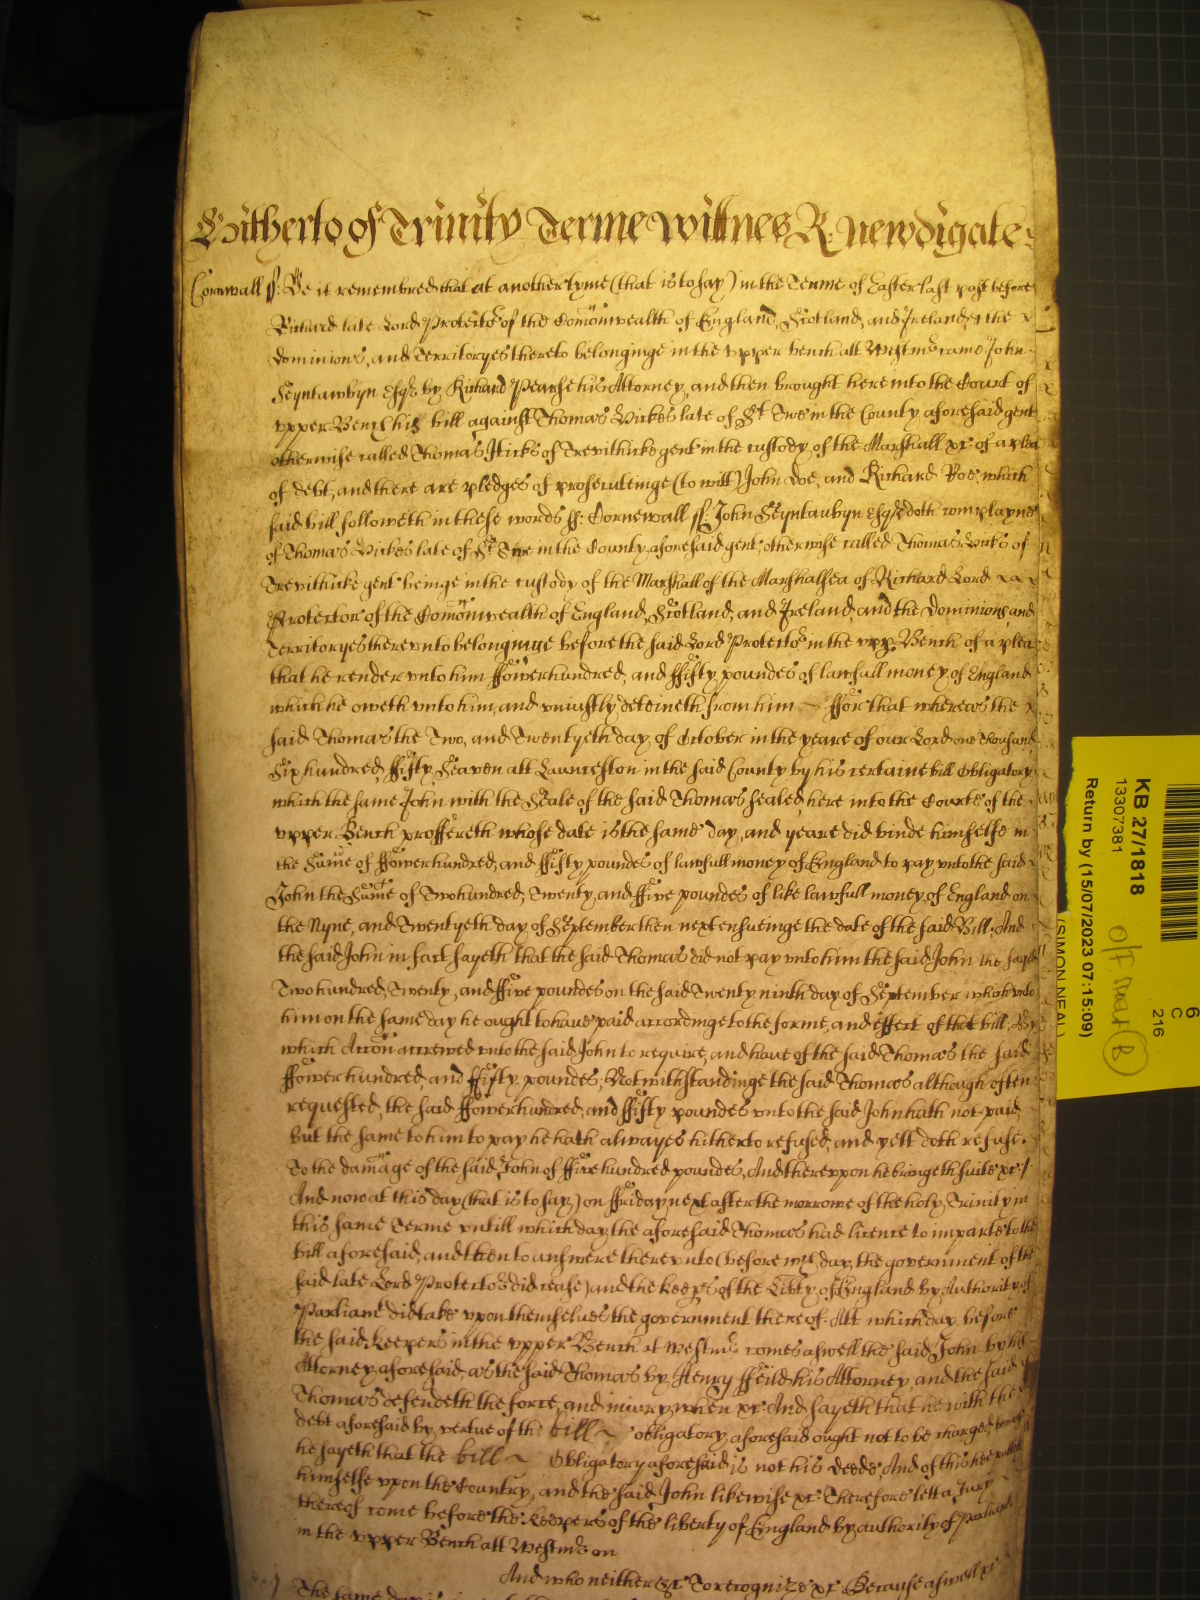 Hitherto of Trinity Terme Wittnes R: Newdigate:
Cornwall ss: Be it remembred that at another tyme (that is to say) in the Terme of Easter last past before
Richard late Lord Protector of the Comonwealth of England, Scotland, and Ireland, & the x
dominions, and Territoryes thereto belonginge in the upper bench att Westmr came John
Seyntawbyn Esqr by Richard Pearse his Attorney, and then brought here into the Court of
upper Bench his bill against Thomas Hickes late of St Ives in the County aforesaid gent
otherwise called Thomas Hicks of Trevithicke gent in the custody of the Marshall &c of a plea
of debt, and there are pledges of prosecuteinge (to witt) John Doe, and Richard Roe, which
said bill followeth in these words ss: Cornewall ss: John Seyntaubyn Esqr doth complayne
of Thomas Hickes late of St Ive in the County aforesaid gent, otherwise called Thomas Hicks of
Trevithicke gent beinge in the custody of the Marshall of the Marshallsea of Richard Lord x x x
Protector of the Comonwealth of England, Scotland, and Ireland, and the Dominions and
Territoryes thereunto belonginge before the said Lord Protector in the upp Bench of a plea
that he render unto him ffower hundred, and ffifty poundes of lawfull money of England
which he oweth unto him, and uniustly deteineth from him ~ ffor that whereas the
said Thomas the Two, and Twentyeth day of October in the yeare of our Lord one thousand
Six hundred, ffifty Seaven att Launceston in the said County by his certaine bill Obligatory
which the same John with the Seale of the said Thomas sealed here into the Courte of the
upper Bench proffereth whose date is the same day, and yeare did binde himselfe in
the Sume of ffower hundred, and ffifty poundes of lawfull money of England to pay unto the said
John the Sume of Two hundred, Twenty, and ffive poundes of like lawfull money of England on
the Nyne, and Twentyeth day of September then next ensueinge the date of the said Bill. And
the said John in fact sayeth that the said Thomas did not pay unto him the said John the sayd
Two hundred, Twenty, and ffive poundes on the said Twenty ninth day of September which unto
him on the same day he ought to have paid accordinge to the forme, and effect of that bill, By
which Accon accrewed unto the said John to require, and have of the said Thomas the said
ffower hundred, and ffifty poundes, Notwithstandinge the said Thomas although often
requested, the said ffower hundred, and ffifty poundes unto the said John hath not paid,
but the same to him to pay he hath alwayes hitherto refused, and yett doth refuse.
To the damage of the said John of ffive hundred poundes, And thereupon he bringeth suite &c /
And now at this day (that is to say) on ffriday next after the morrowe of the holy Trinity in
this same Terme untill which day the aforesaid Thomas had licence to imparle to the
bill aforesaid, and then to answere thereunto (before wch day the government of the
said late Lord Protector did cease) and the keeps of the Libty of England by Authority of
Parliamt did take upon themselves the government thereof. Att which day before
the said Keepers in the upper Bench at Westmr comes aswell the said John by his
Attorney aforesaid, as the said Thomas by Henry ffeild his Attorney, and the said
Thomas defendeth the force, and iniury, when &c And sayeth that he with the
debt aforesaid by vertue of the bill ~ obligatory aforesaid ought not to be charged,
he sayeth that the bill ~ Obligatory aforesaid is not his deede, And of this hee putteth
himselfe upon the Country, and the said John likewise &c Therefore lett a Jury
thereof come before the Keepers of the liberty of England by authority of Parliamt
in the upper Bench att Westmr on
And who neither &c To recognize &c Because aswell &c
The same day is
KB 27/1818
13307381
Return by (15/07/2023 07:15:09)
(SIMON NEAL)
6
C
216
B